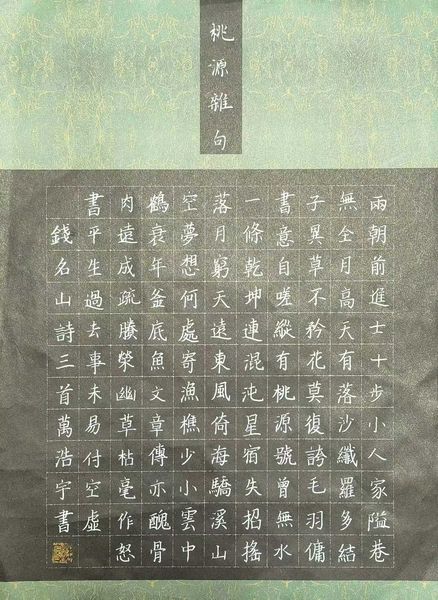 桃源雜句
兩朝前進士十步小人家隘巷
無仝月高天有落沙纖羅多結
子異草不矜花莫復誇毛羽傭
書意自嗟縱有桃源號曾無水
一條乾坤連混沌星宿失招搖
落月窮天遠東風倚海驕溪山
空夢想何處寄漁樵少小雲中
鶴衰年釜底魚文章傳亦醜骨
肉遠成疏騰榮幽草枯毫作怒
書平生過去事未易付空虛
錢名山詩三首萬浩宇書